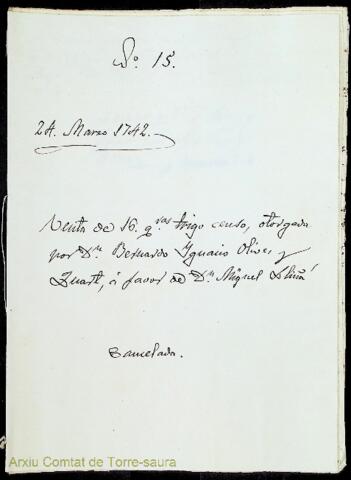 Nº. 15.
24. Marzo 1742.
Venta de 16. q.ras trigo censo, otorgada
por Dn. Bernardo Ygnacio Olives y
Zuart, á favor de Dn. Miquel Lluriá
Cancelada.
Arxiu Comtat de Torre-saura